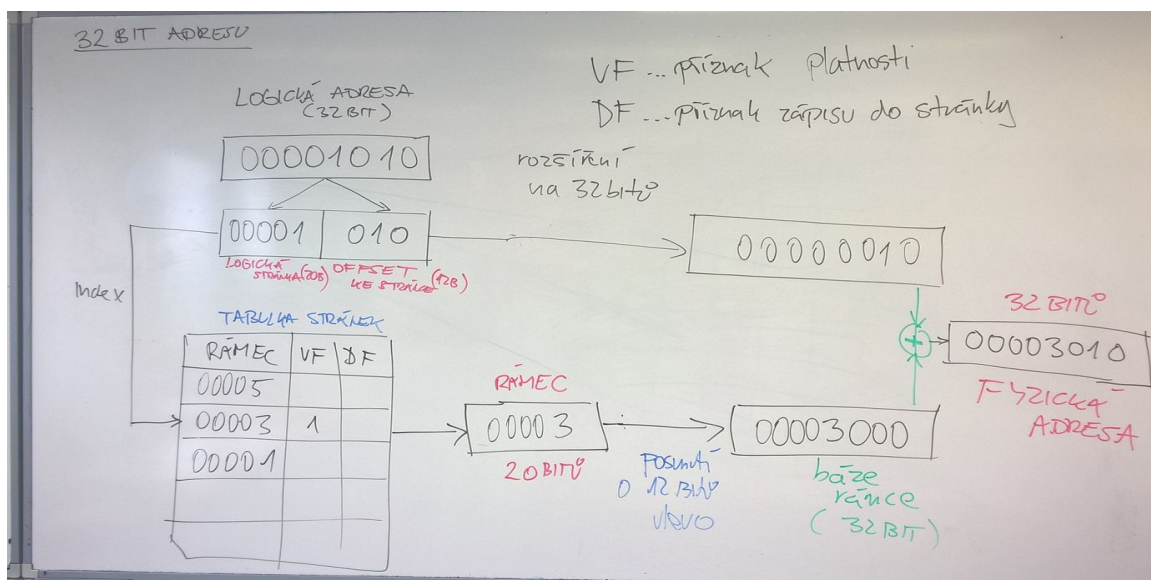 32 BIT ADRESU
VF ... příznak platnosti
DF ... příznak zápisu do stránky
LOGICKÁ ADRESA
(32 BIT)
00001010
rozšíření
na 32 bitů
00001
010
00000010
LOGICKÁ
STRÁNKA (20B)
OFFSET
KE STRÁNCE (12B)
Index
TABULKA STRÁNEK
RÁMEC VF DF
00005
00003 1
00001
RÁMEC
00003
20 BITŮ
POSUNUTÍ
O 12 BITŮ
VLEVO
00003000
báze
rámce
(32 BIT)
+
32 BITŮ
00003010
FYZICKÁ
ADRESA